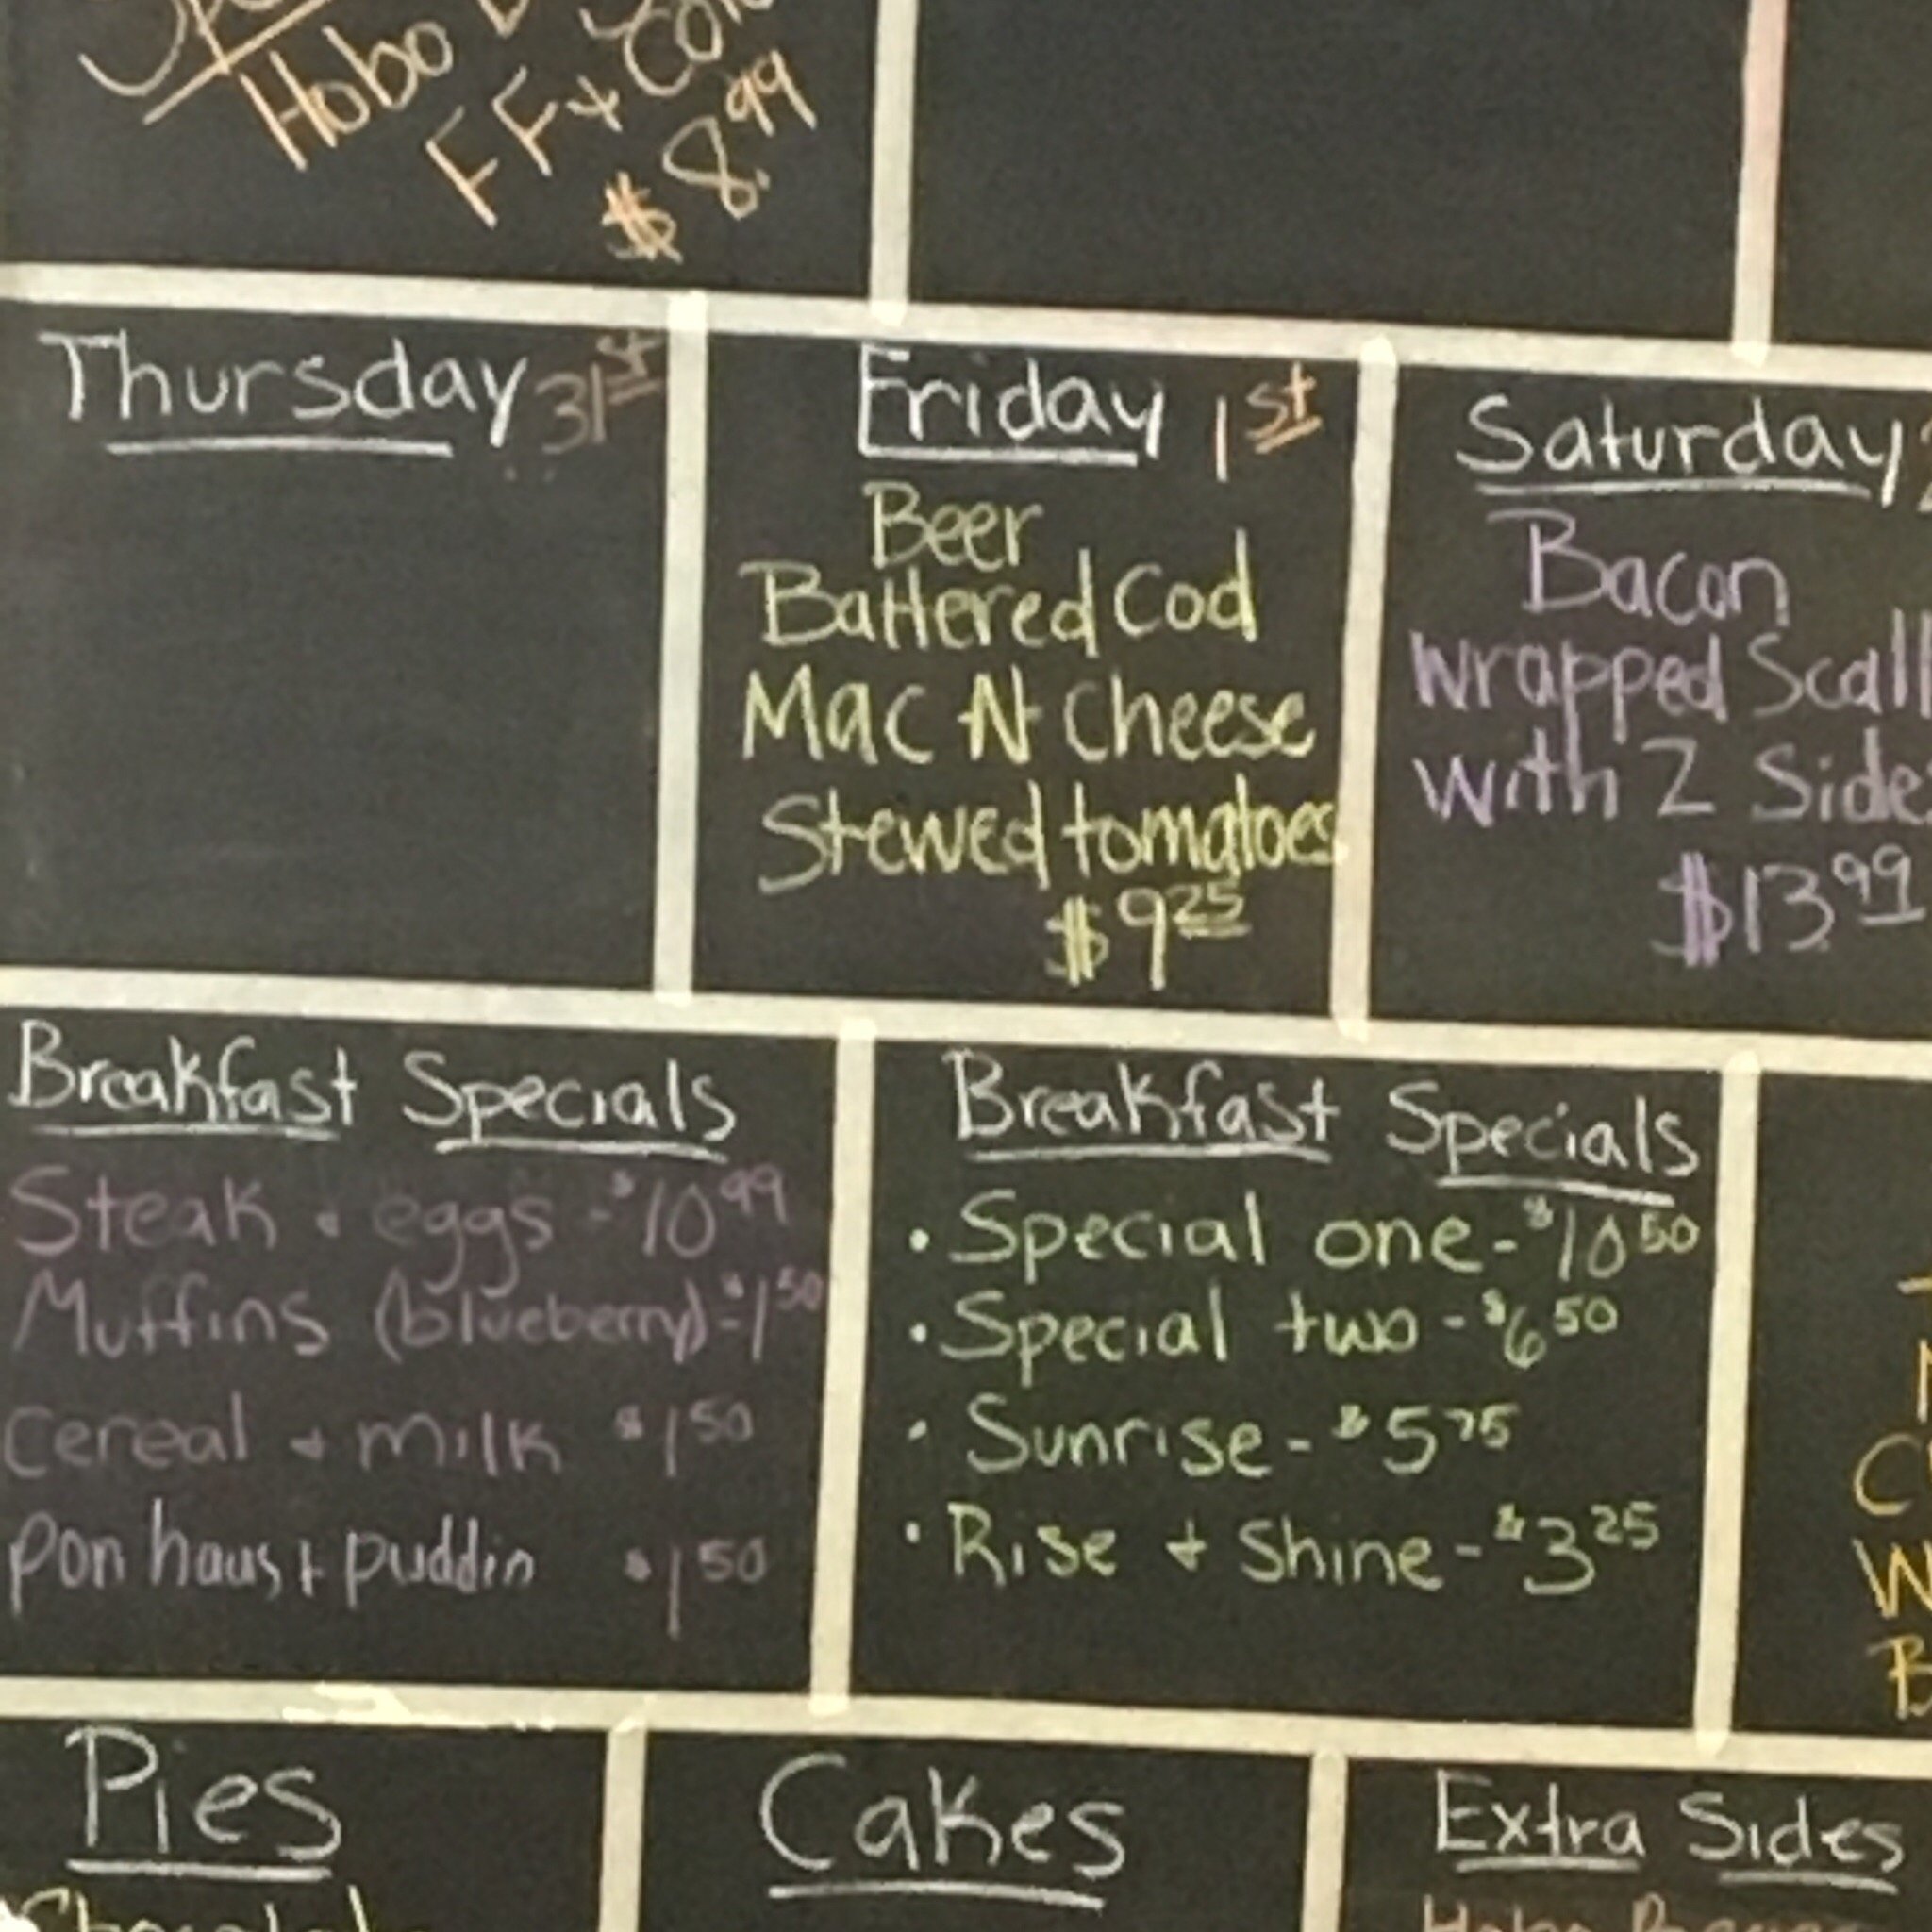 Hobo
FF +
$8.99
Thursday 31st
Friday 1st
Beer
Battered Cod
Mac N Cheese
Stewed tomatoes
$9 25
Saturday
Bacon
wrapped Scall
with 2 Side
$13.99
Breakfast Specials
Steak + eggs - $10 99
Muffins (blueberry) - $1 50
Cereal + milk $1 50
pon haus + puddin $1 50
Breakfast Specials
• Special one - $10 50
• Special two - $6 50
• Sunrise - $5 75
• Rise + Shine - $3 25
Pies
Cakes
Extra Sides